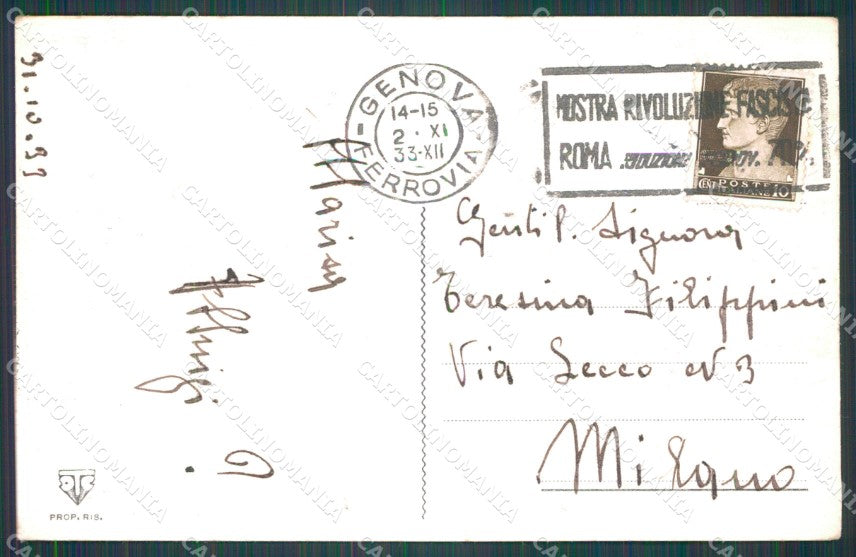 31.10.33
GENOVA
14-15
2 · XI
33·XII
FERROVIA
MOSTRA RIVOLUZIONE FASCIS
ROMA RIDUZIONI FERROV. 70%
CENT POSTE ITALIANE 10
Marisa
Gentil. Signora
Teresina Filippini
Via Lecco N 3
Milano
PROP. RIS.
CARTOLINOMANIA